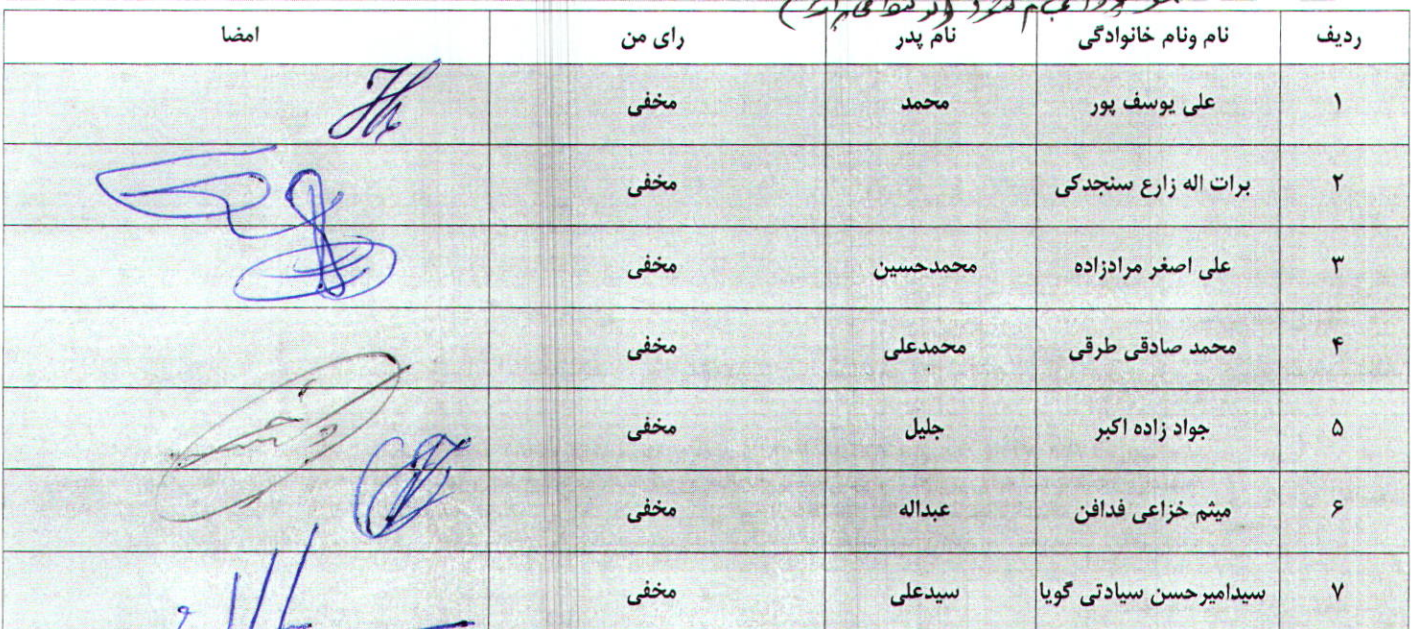 ردیف نام ونام خانوادگی نام پدر رای من امضا
۱ علی یوسف پور محمد مخفی
۲ برات اله زارع سنجدکی مخفی
۳ علی اصغر مرادزاده محمدحسین مخفی
۴ محمد صادقی طرقی محمدعلی مخفی
۵ جواد زاده اکبر جلیل مخفی
۶ میثم خزاعی فدافن عبداله مخفی
۷ سیدامیرحسن سیادتی گویا سیدعلی مخفی